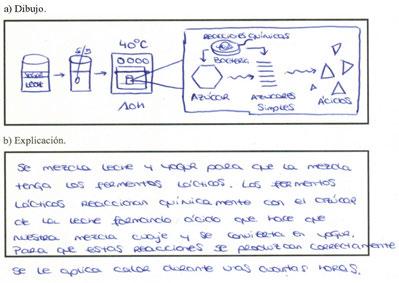 a) Dibujo.
YOGUR
LECHE
40ºC
10H
REACCIONES QUÍMICAS
BACTERIA
AZÚCAR
AZÚCARES
SIMPLES
ÁCIDOS
b) Explicación.
Se mezcla leche y yogur para que la mezcla
tenga los fermentos lácticos. Los fermentos
lácticos reaccionan químicamente con el azúcar
de la leche formando ácido que hace que
nuestra mezcla cuaje y se convierta en yogur.
Para que estas reacciones se produzcan correctamente
se le aplica calor durante unas cuantas horas.